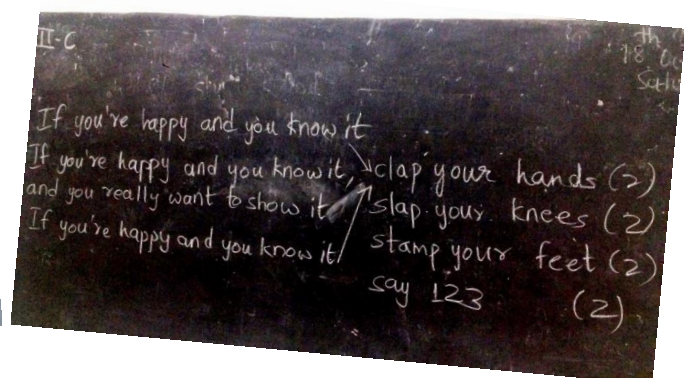 II-C
18
If you're happy and you know it
If you're happy and you know it,
and you really want to show it
If you're happy and you know it
clap your hands (2)
slap your knees (2)
stamp your feet (2)
say 123 (2)